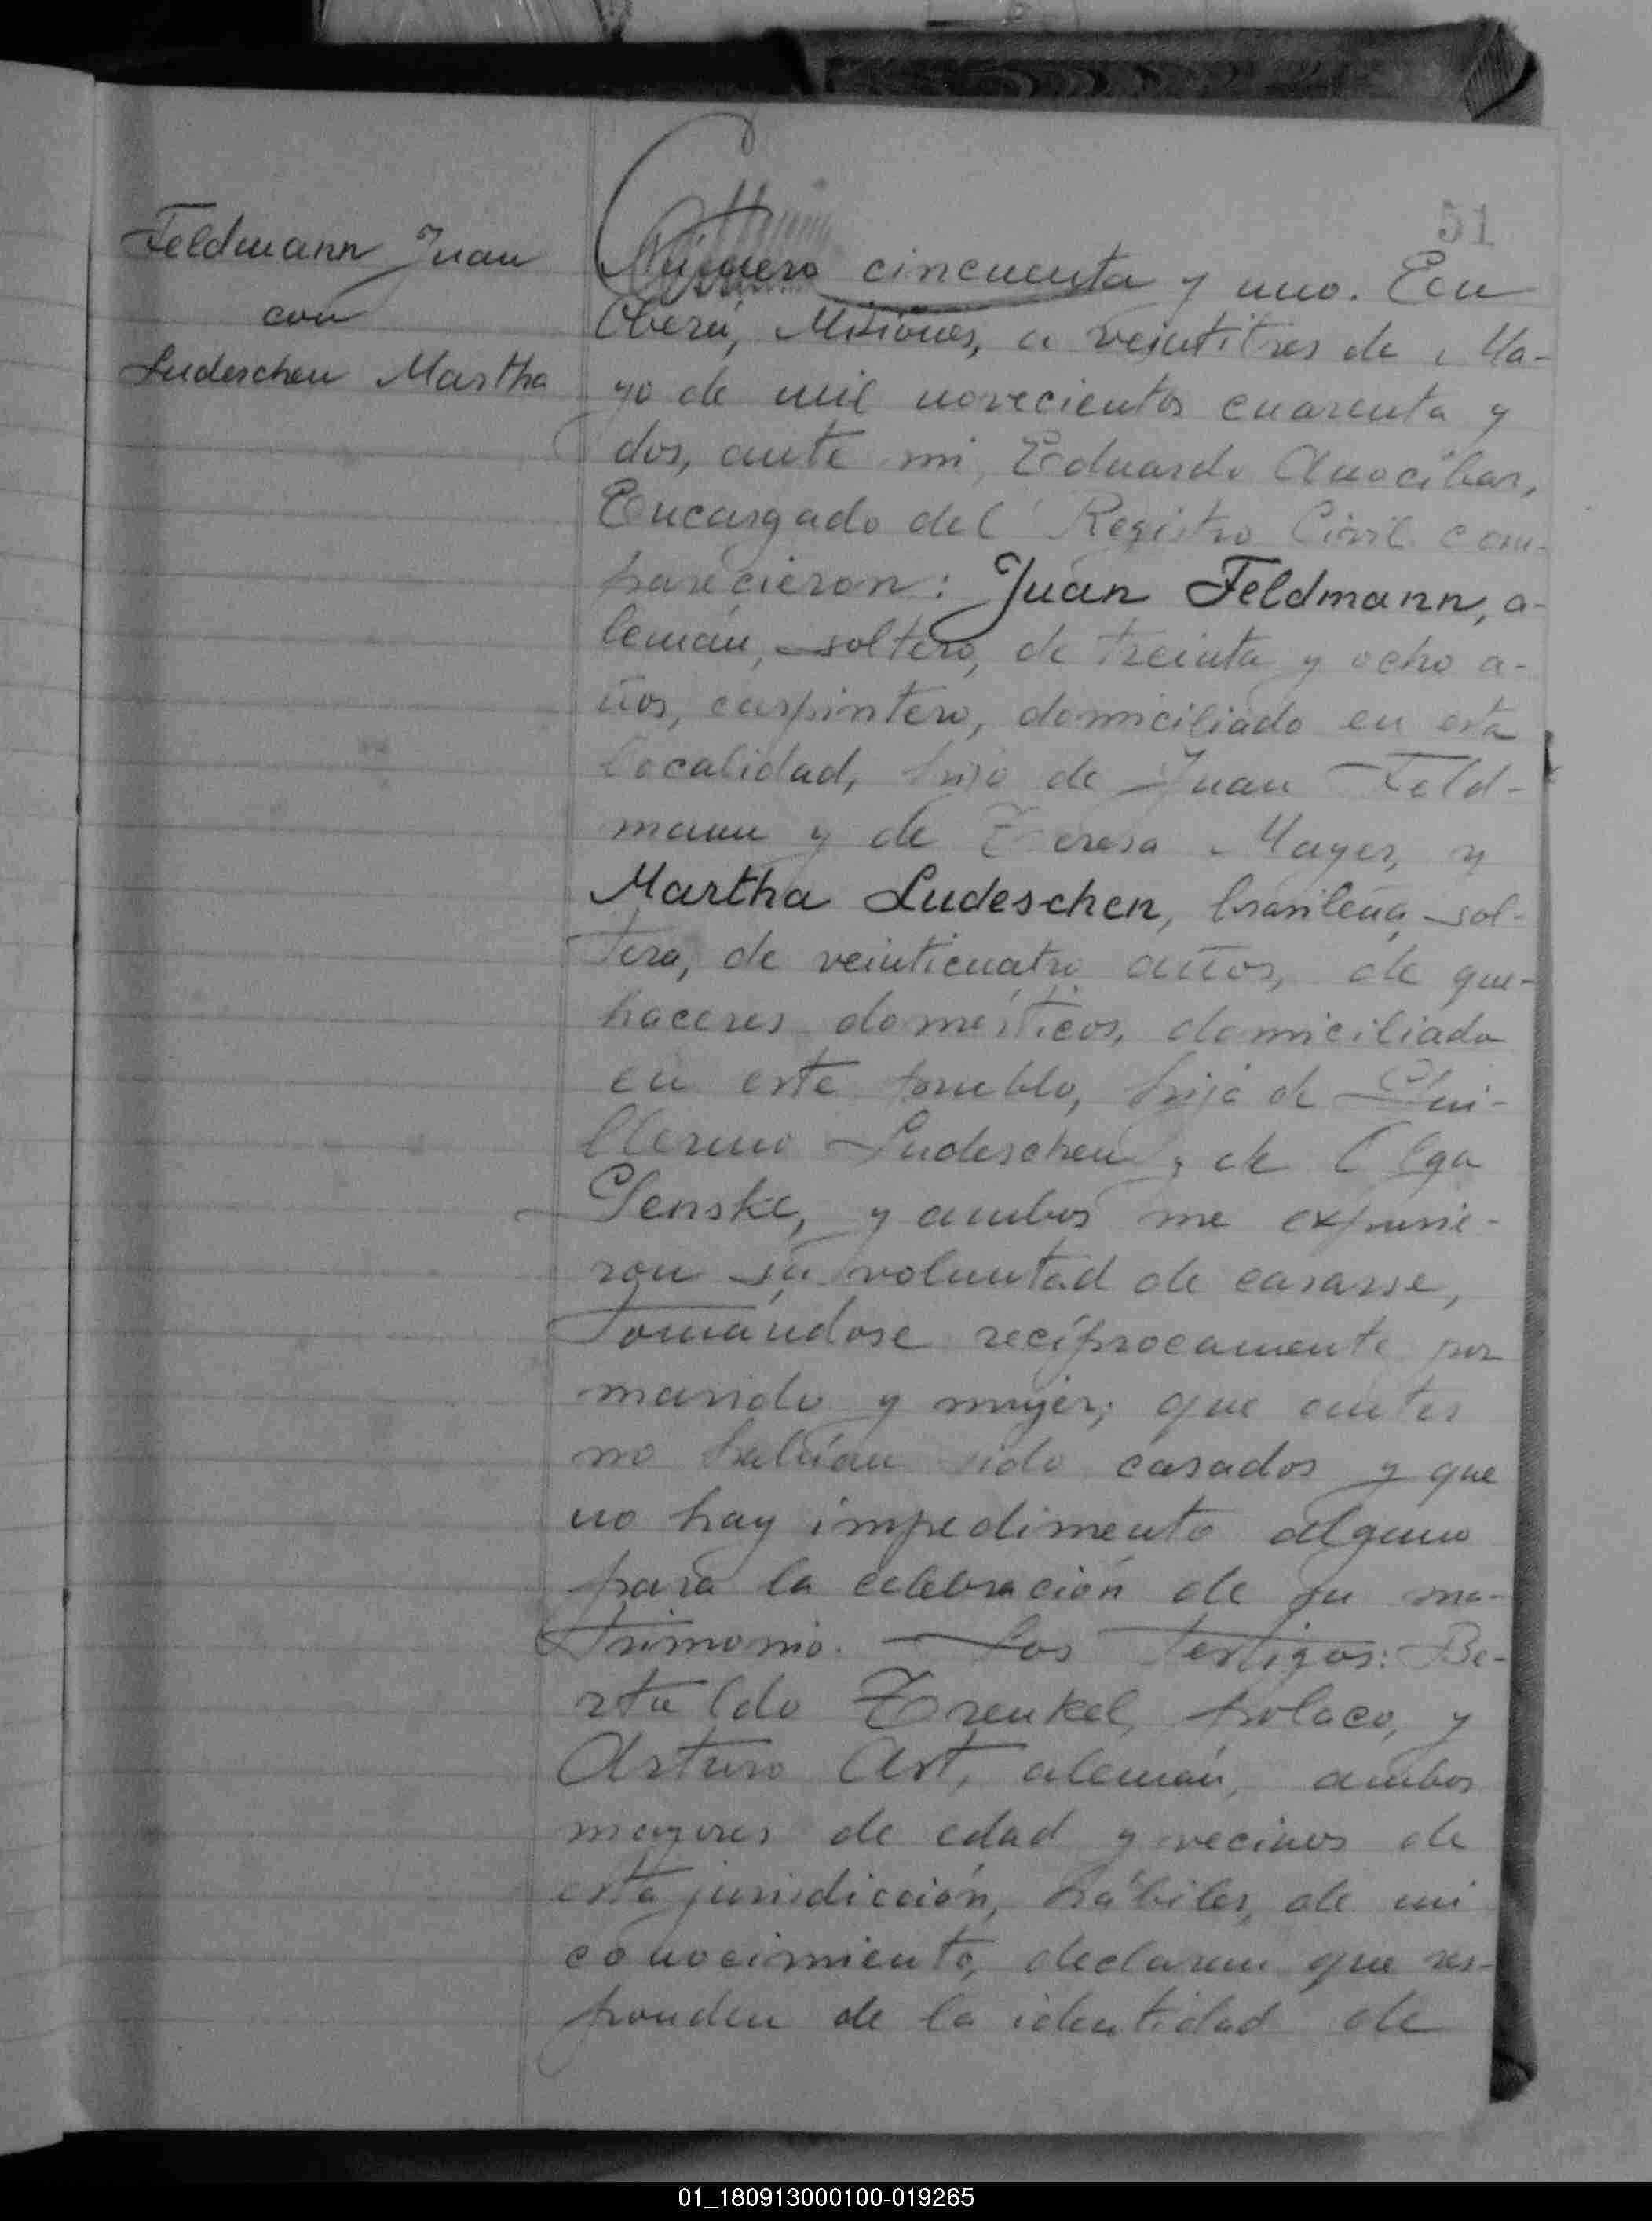 51
Feldmann Juan
con
Ludeschen Martha
Número cincuenta y uno. En
Oberá, Misiones, a veintitres de Ma-
yo de mil novecientos cuarenta y
dos, ante mi, Eduardo Anocibar,
Encargado del Registro Civil com-
parecieron: Juan Feldmann, a-
lemán, soltero, de treinta y ocho a-
ños, carpintero, domiciliado en esta
localidad, hijo de Juan Feld-
mann y de Teresa Mayer, y
Martha Ludeschen, brasileña, sol-
tera, de veinticuatro años, de que-
haceres domésticos, domiciliada
en este pueblo, hija de Gui-
llermo Ludeschen y de Olga
Jenske, y ambos me expusie-
ron su voluntad de casarse,
tomándose recíprocamente por
marido y mujer; que antes
no habían sido casados y que
no hay impedimento alguno
para la celebración de su ma-
trimonio. Los testigos: Be-
rtoldo Trenkel, polaco, y
Arturo Art, alemán, ambos
mayores de edad y vecinos de
esta jurisdicción, hábiles, de mi
conocimiento, declaran que res-
ponden de la identidad de
01_180913000100-019265